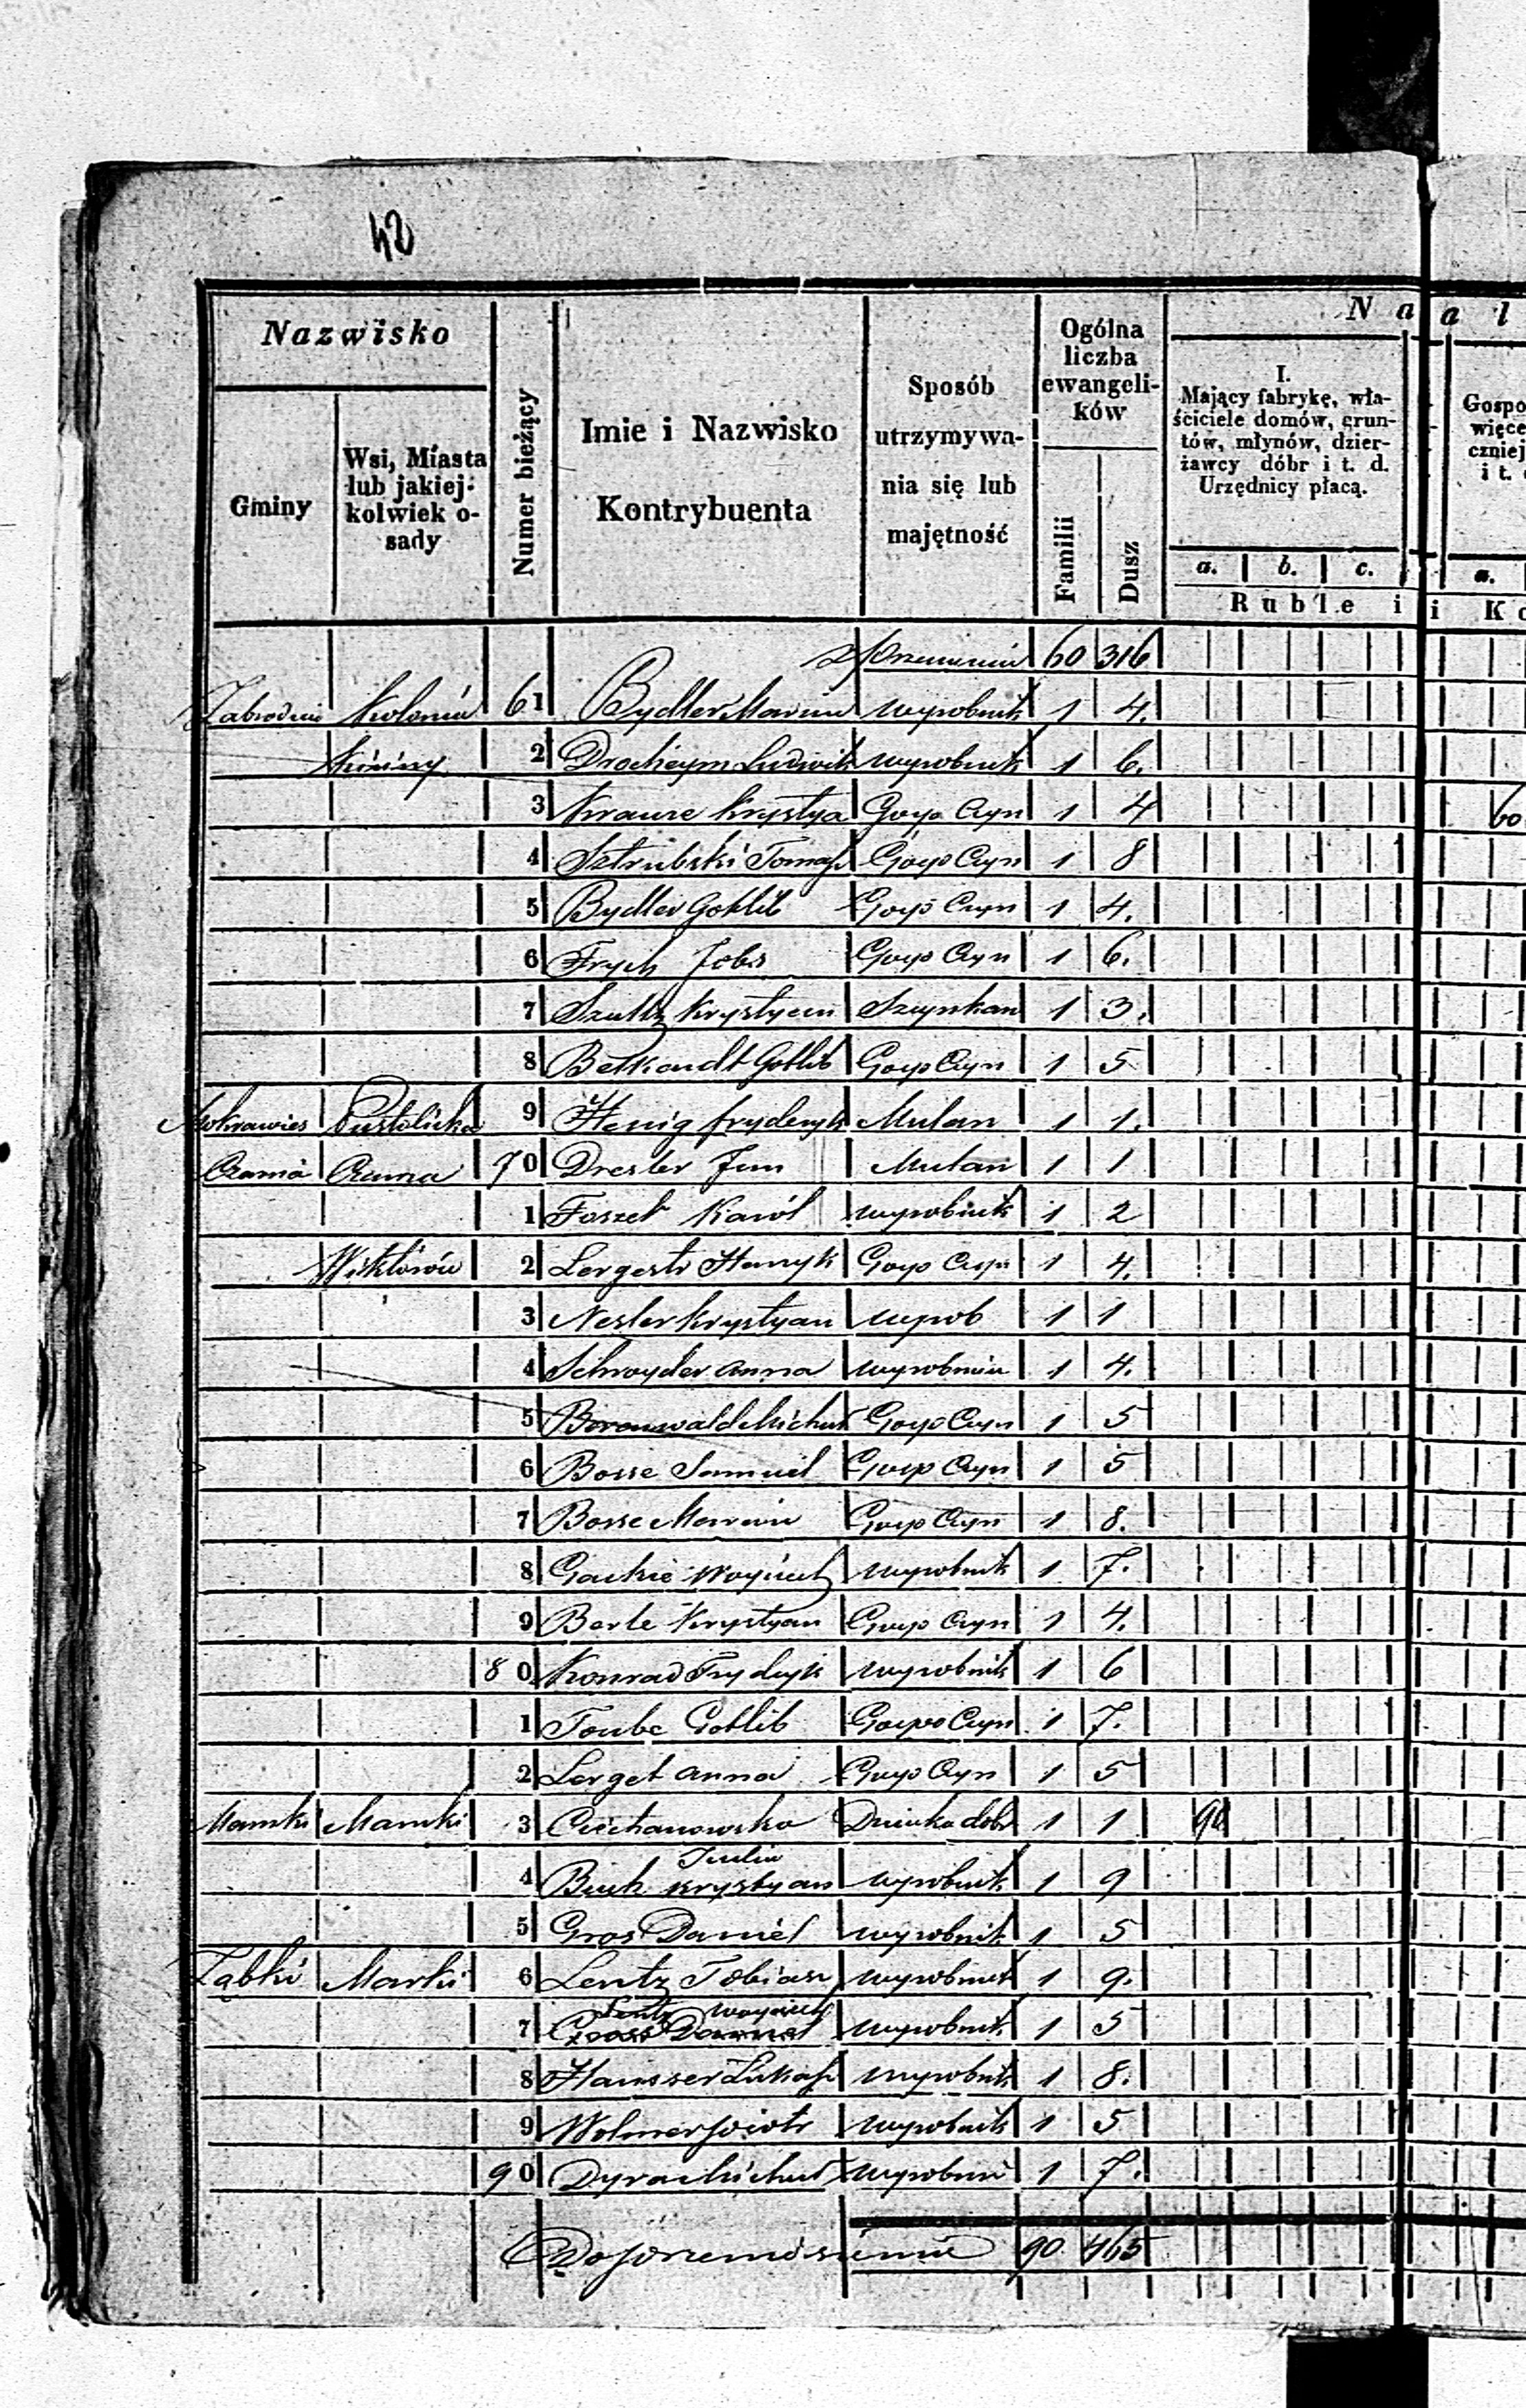 42
Nazwisko
Gminy
Wsi, Miasta
lub jakiej-
kolwiek o-
sady
Numer bieżący
Imie i Nazwisko
Kontrybuenta
Sposób
utrzymywa-
nia się lub
majętność
Ogólna
liczba
ewangeli-
ków
Familii
Dusz
N a a l
I.
Mający fabrykę, wła-
ściciele domów, grun-
tów, młynów, dzier-
żawcy dóbr i t. d.
Urzędnicy płacą.
a. b. c.
Ruble i i Ko
Gospo
więce
czniej
i t.
a.
z przeniesienia 60 316
Kolonia 61 Bydler Marcin wyrobnik 1 4.
2 Ludwik wyrobnik 1 6.
3 Krause Krystya Gosp Czyn 1 4 60
4 Sztrubski Tomasz Gosp Czyn 1 8
5 Bydler Gotlib Gosp Czyn 1 4.
6 Frych Gosp Czyn 1 6.
7 Szultz Krystyan Szynkarz 1 3.
8 Gotlib Gosp Czyn 1 5
9 Henig fryderyk Mularz 1 1.
Czarna Czarna 70 Dresler Jan Mularz 1 1
1 Karól wyrobnik 1 2
Wiktorów 2 Henryk Gosp Czyn 1 4.
3 Nesler Krystyan wyrob 1 1
4 Schroyder Anna wyrobnica 1 4.
5 Michał Gosp Czyn 1 5
6 Bosse Samuel Gosp Czyn 1 5
7 Bosse Marcin Gosp Czyn 1 8.
8 Woyciech wyrobnik 1 7.
9 Berle Krystyan Gosp Czyn 1 4.
80 Konrad Frydryk wyrobnik 1 6
1 Taube Gotlib Gosp Czyn 1 7.
2 Lerget Anna Gosp Czyn 1 5
Marcki Marcki 3 Ciechanowska dobr 1 1 90
Julia
4 Krystyan wyrobnik 1 9
5 Gros Daniel wyrobnik 1 5
Ząbki Marki 6 Lentz Tobiasz wyrobnik 1 9.
Lentz Woyciech
7 Gross Daniel wyrobnik 1 5
8 Hausser Łukasz wyrobnik 1 8.
9 Wolmer piotr wyrobnik 1 5
90 Dyra Michał wyrobnik 1 7.
Do przeniesienia 90 465